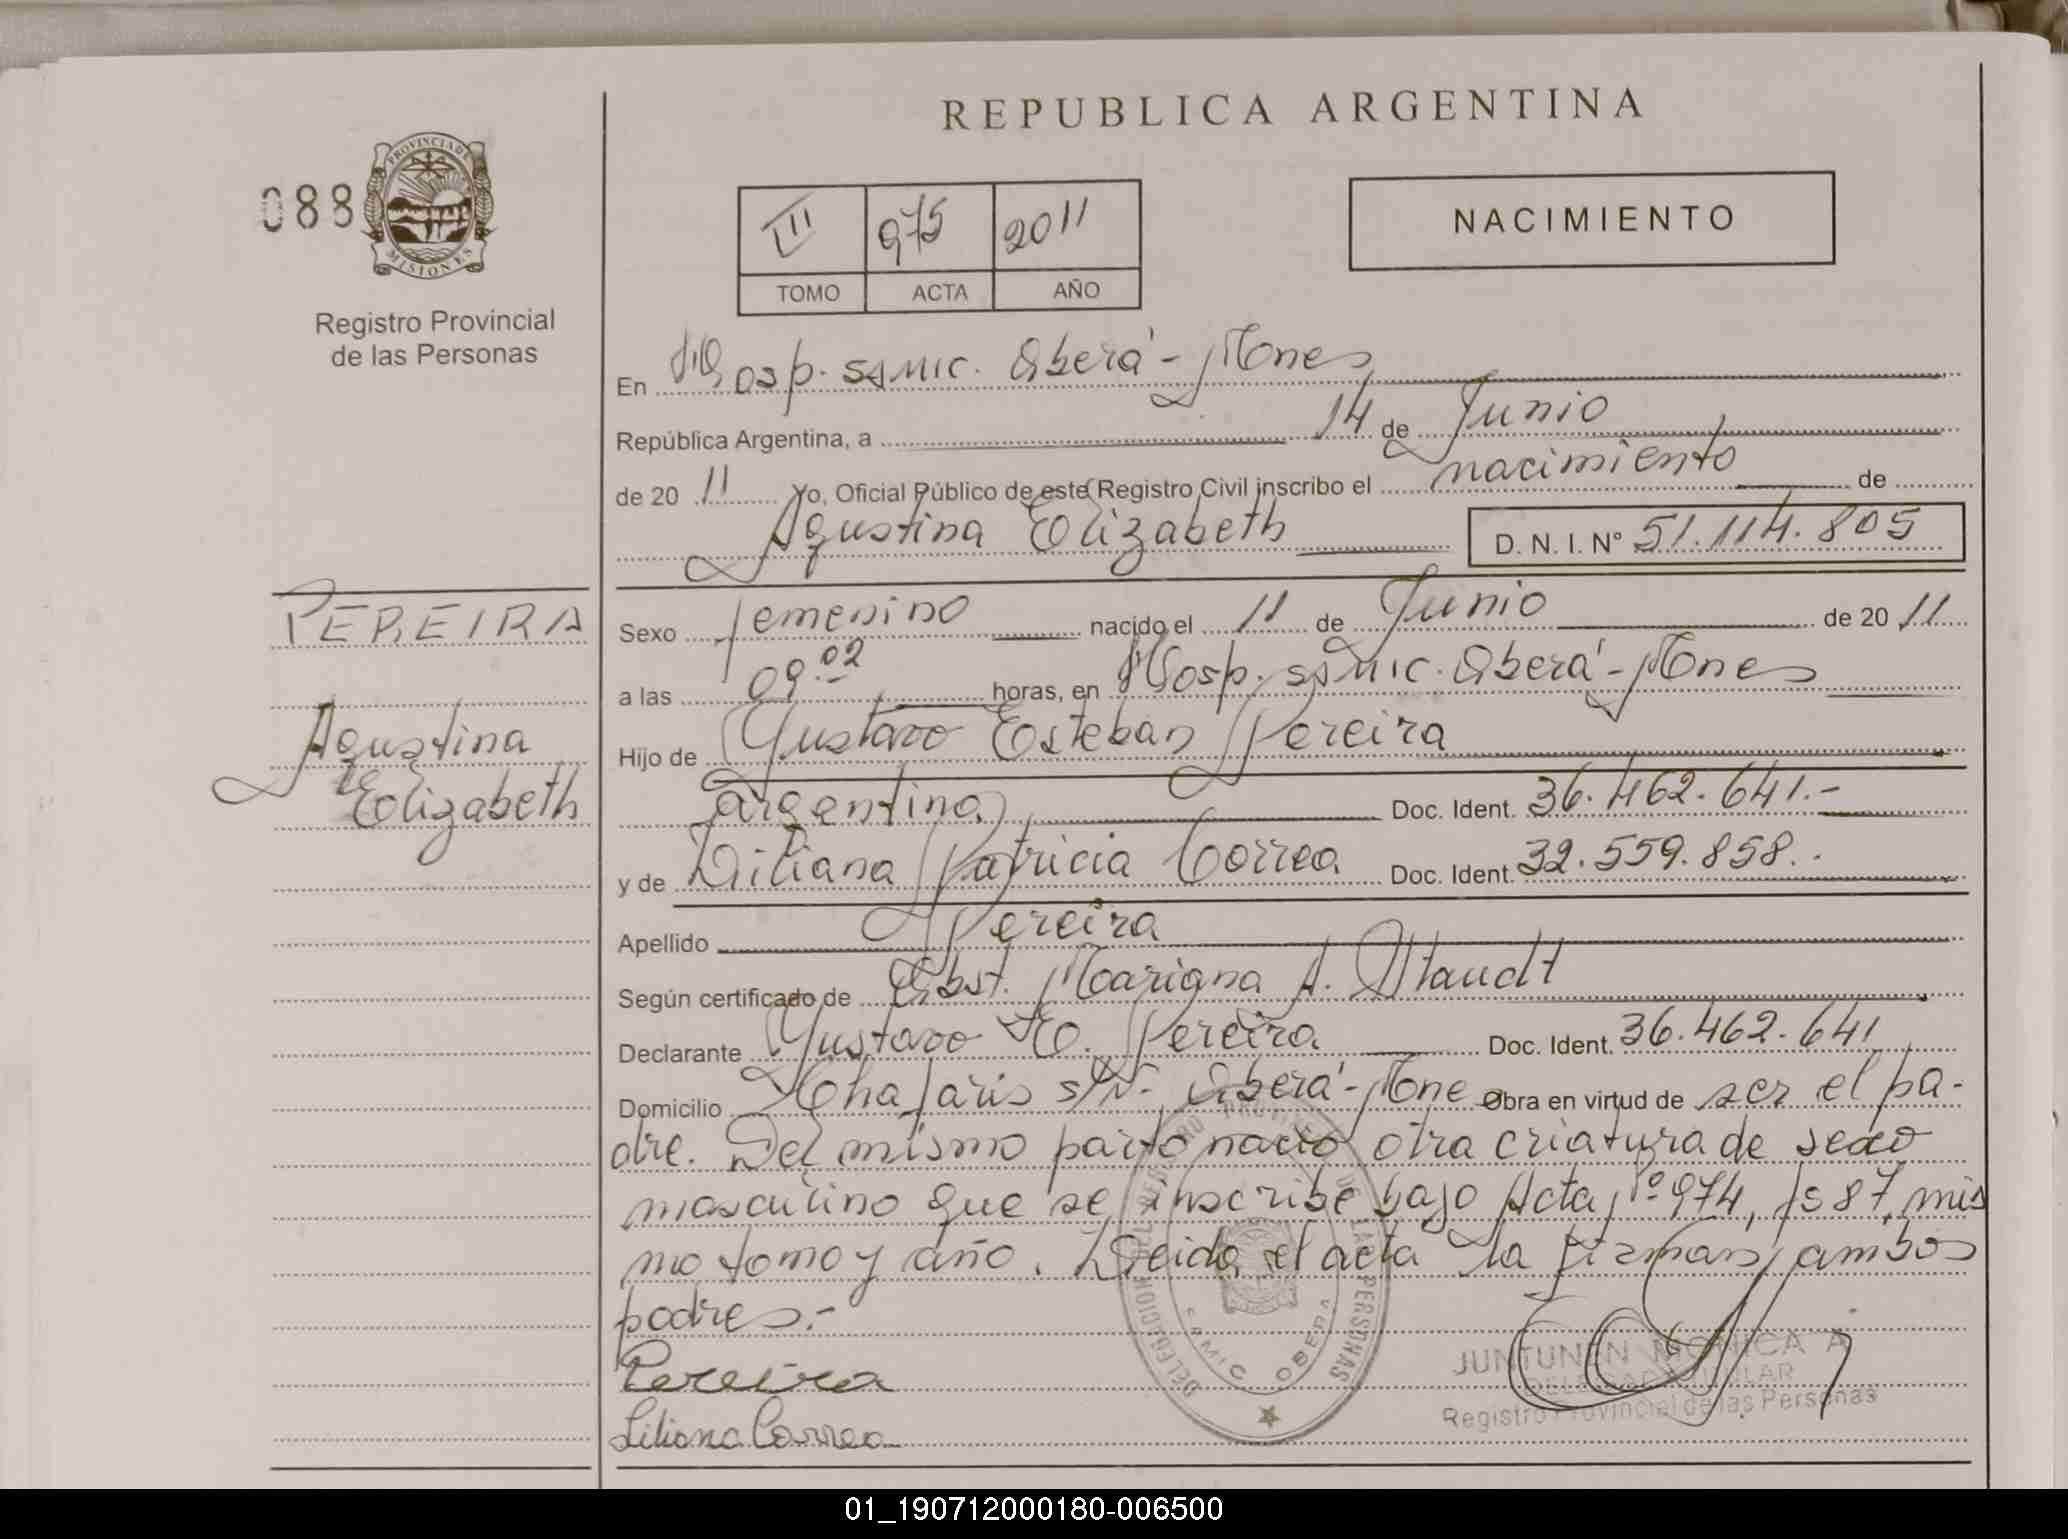 REPUBLICA ARGENTINA
088
PROVINCIA DE
MISIONES
Registro Provincial
de las Personas
III 975 2011
TOMO ACTA AÑO
NACIMIENTO
En Hosp. SAMIC. Oberá - Mones
República Argentina, a 14 de Junio
de 20 11 Yo, Oficial Público de este Registro Civil inscribo el nacimiento de
Agustina Elizabeth D. N. I. Nº 51.114.805
PEREIRA
Agustina
Elizabeth
Sexo femenino nacido el 11 de Junio de 20 11
a las 09.02 horas, en Hosp. SAMIC. Oberá - Mones
Hijo de Gustavo Esteban Pereira
argentino Doc. Ident. 36.462.641.-
y de Liliana Patricia Correa Doc. Ident. 32.559.858.
Apellido Pereira
Según certificado de Obst. Mariana A. Staudt
Declarante Gustavo E. Pereira Doc. Ident. 36.462.641
Domicilio Chajaris s/Nº Oberá - Mone Obra en virtud de ser el pa-
dre. Del mismo parto nació otra criatura de sexo
masculino que se inscribe bajo Acta Nº 974, fs 87, mis
mo tomo y año. Leida el acta la firman ambos
padres.-
Pereira
Liliana Correa
DELEGACION DEL REGISTRO PROVINCIAL DE LAS PERSONAS
SAMIC OBERA
JUNTUNEN MONICA A
DELEGADA TITULAR
Registro Provincial de las Personas
01_190712000180-006500